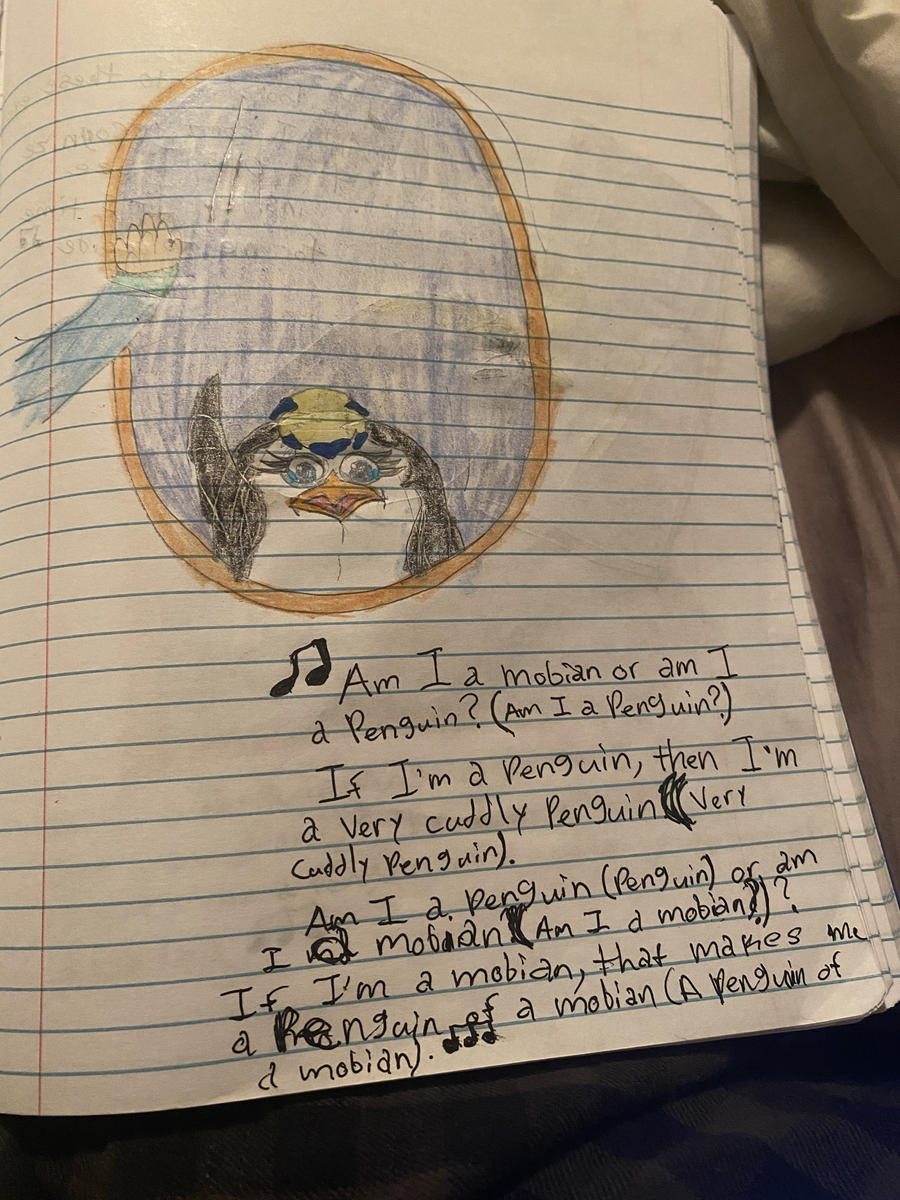 Am I a mobian or am I
a Penguin? (Am I a Penguin?)
If I'm a Penguin, then I'm
a very cuddly Penguin (Very
cuddly Penguin).
Am I a Penguin (Penguin) or am
I a mobian (Am I a mobian?)?
If I'm a mobian, that makes me
a Penguin of a mobian (A Penguin of
a mobian).